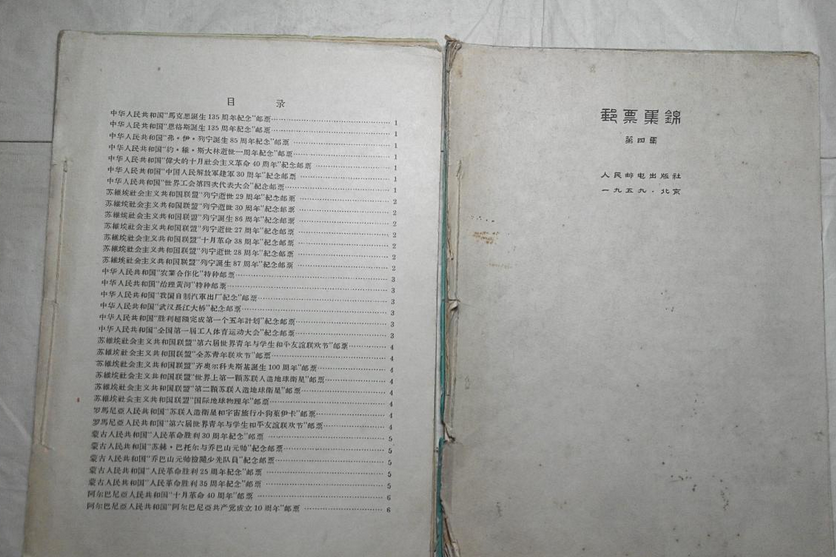 目 录
中华人民共和国“馬克思誕生135周年紀念”邮票 1
中华人民共和国“恩格斯誕生135周年紀念”邮票 1
中华人民共和国“弗·伊·列宁誕生85周年紀念”邮票 1
中华人民共和国“約·維·斯大林逝世一周年紀念”邮票 1
中华人民共和国“偉大的十月社会主义革命40周年”紀念邮票 1
中华人民共和国“中国人民解放軍建軍30周年”紀念邮票 1
中华人民共和国“世界工会第四次代表大会”紀念邮票 1
苏維埃社会主义共和国联盟“列宁逝世29周年”紀念邮票 2
苏維埃社会主义共和国联盟“列宁逝世30周年”紀念邮票 2
苏維埃社会主义共和国联盟“列宁誕生86周年”紀念邮票 2
苏維埃社会主义共和国联盟“列宁逝世27周年”紀念邮票 2
苏維埃社会主义共和国联盟“十月革命38周年”紀念邮票 2
苏維埃社会主义共和国联盟“列宁逝世28周年”紀念邮票 2
苏維埃社会主义共和国联盟“列宁誕生87周年”紀念邮票 2
中华人民共和国“农業合作化”特种邮票 3
中华人民共和国“治理黄河”特种邮票 3
中华人民共和国“我国自制汽車出厂紀念”邮票 3
中华人民共和国“武汉長江大桥”紀念邮票 3
中华人民共和国“胜利超額完成第一个五年計划”紀念邮票 3
中华人民共和国“全国第一届工人体育运动大会”紀念邮票 3
苏維埃社会主义共和国联盟“第六届世界青年与学生和平友誼联欢节”邮票 4
苏維埃社会主义共和国联盟“全苏青年联欢节”邮票 4
苏維埃社会主义共和国联盟“齐奥尔科夫斯基誕生100周年”邮票 4
苏維埃社会主义共和国联盟“世界上第一顆苏联人造地球衛星”邮票 4
苏維埃社会主义共和国联盟“第二顆苏联人造地球衛星”邮票 4
苏維埃社会主义共和国联盟“国际地球物理年”邮票 4
罗馬尼亞人民共和国“苏联人造衛星和宇宙旅行小狗萊伊卡”邮票 4
罗馬尼亞人民共和国“第六届世界青年与学生和平友誼联欢节”邮票 4
蒙古人民共和国“人民革命胜利30周年紀念”邮票 5
蒙古人民共和国“苏赫·巴托尔与乔巴山元帅”紀念邮票 5
蒙古人民共和国“乔巴山元帅接見少先队員”紀念邮票 5
蒙古人民共和国“人民革命胜利25周年紀念”邮票 5
蒙古人民共和国“人民革命胜利35周年紀念”邮票 5
阿尔巴尼亞人民共和国“十月革命40周年”邮票 6
阿尔巴尼亞人民共和国“阿尔巴尼亞共产党成立10周年”邮票 6
郵票集錦
第四集
人民邮电出版社
一九五九·北京